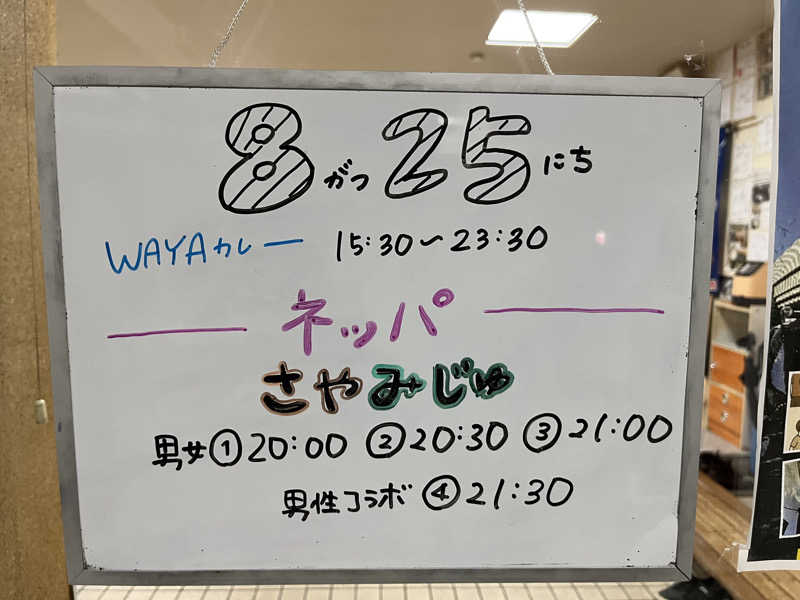 8がつ25にち
WAYAカレー 15:30〜23:30
ネッパ
さやみじゅ
男女①20:00 ②20:30 ③21:00
男性コラボ ④21:30